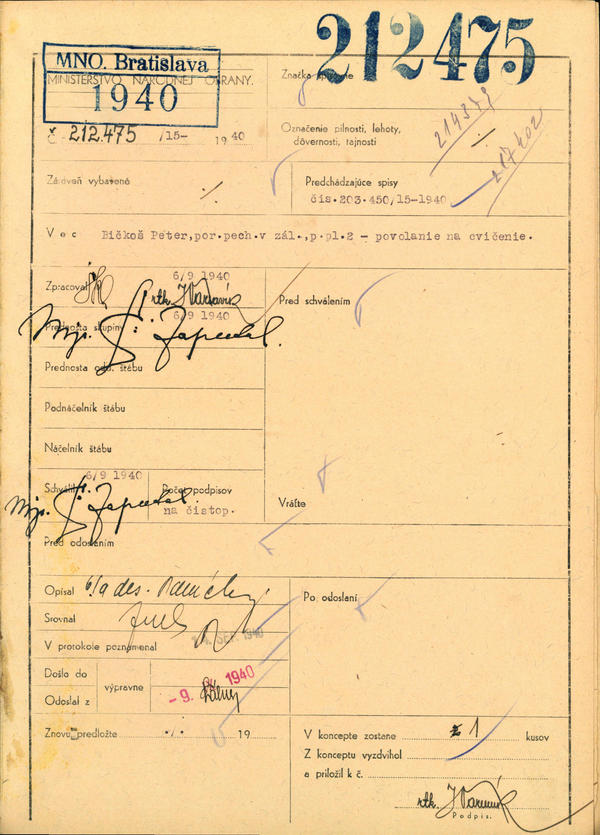 212475
MNO. Bratislava
MINISTERSTVO NÁRODNEJ OBRANY.
1940
Značka spisovne
č. 212.475 /15- 1940
Označenie pilnosti, lehoty,
dôvernosti, tajnosti
214379
217402
Zároveň vybavené
Predchádzajúce spisy
čís.203.450/15-1940
Vec Bičkoš Peter,por.pech.v zál.,p.pl.2 - povolanie na cvičenie.
6/9 1940
Zpracoval
rtk.
Pred schválením
6/9 1940
Prednosta skupiny
Mjr.
Prednosta odd. štábu
Podnáčelník štábu
Náčelník štábu
6/9 1940
Schválil
Mjr.
Počet podpisov
na čistop.
Vráťte
Pred odoslaním
Opísal 6/9 des.
Po odoslaní
Srovnal
V protokole poznamenal
SEP. 1940
Došlo do
výpravne
Odoslal z
-9. 1940
Znovu predložte 19
V koncepte zostane 1 kusov
Z konceptu vyzdvihol
a priložil k č.
rtk.
Podpis.